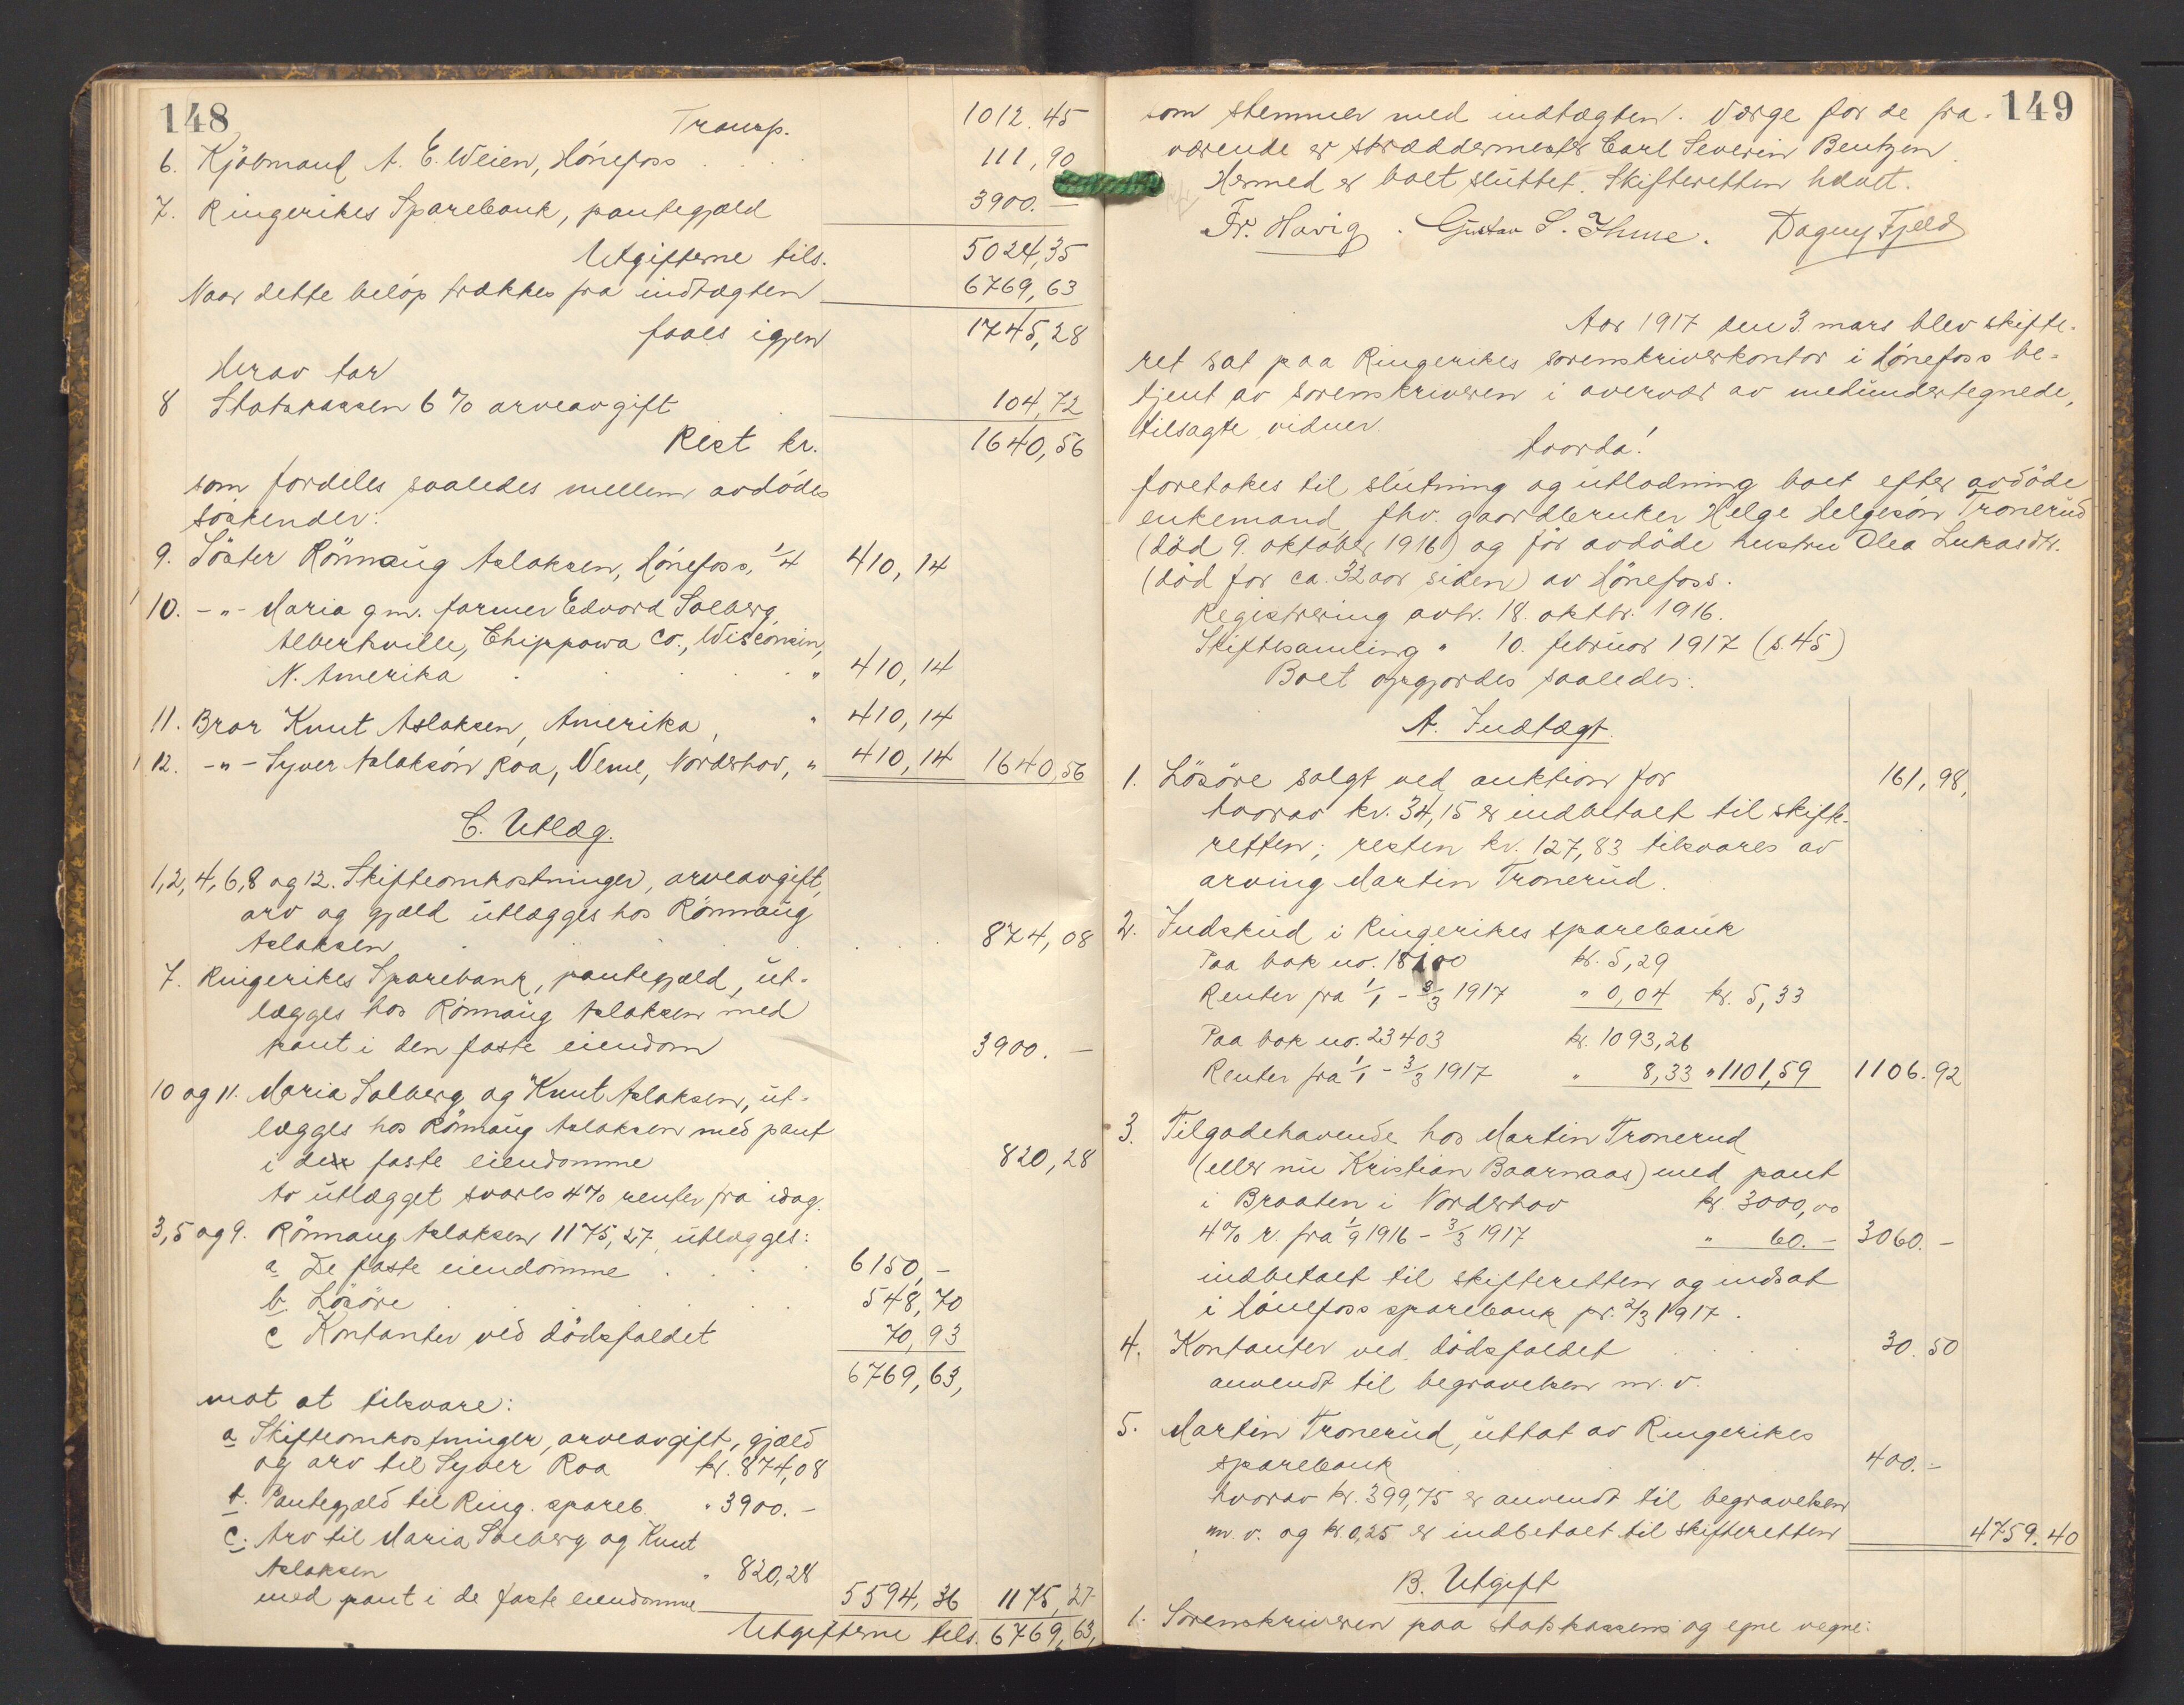 148
Transp. 1012.45
6. Kjöbmand A. E. Weien, Hönefoss . . . 111,90
7. Ringerikes Sparebank, pantegjæld 3900.—
Utgifterne tils. 5024,35
Naar dette belöp trækkes fra indtægten 6769,63
faaes igjen 1745,28
Herav tar
8 Statskassen 6% arveavgift . 104,72
Rest kr. 1640,56
som fordeles saaledes mellem avdödes
söskender:
9. Söster Rönnaug Aslaksen, Hönefoss, 1/4 410,14
10. -"- Maria gm. farmer Edvard Solberg,
Albertville, Chippowa Co., Wisconsin,
N. Amerika . . . . . " 410,14
11. Bror Knut Aslaksen, Amerika, " 410,14
12. -"- Syver Aslaksön Roa, Veme, Norderhov, " 410,14 1640,56
C. Utlæg.
1, 2, 4, 6, 8 og 12. Skifteomkostninger, arveavgift,
arv og gjæld utlægges hos Rönnaug
Aslaksen . . . . . 874,08
7. Ringerikes Sparebank, pantegjæld, ut-
lægges hos Rönnaug Aslaksen med
pant i den faste eiendom 3900.—
10 og 11. Maria Solberg og Knut Aslaksen, ut-
lægges hos Rönnaug Aslaksen med pant
i de faste eiendomme 820,28
Av utlægget svares 4% renter fra idag.
3, 5 og 9. Rönnaug Aslaksen 1175,27, utlægges:
a De faste eiendomme . . . . 6150,—
b. Lösöre . . . . . . 548,70
c Kontanter ved dödsfaldet 70,93
6769,63,
mot at tilsvare:
a Skifteomkostninger, arveavgift, gjæld
og arv til Syver Roa kr. 874,08
b. Pantegjæld til Ring. spareb. " 3900.—
c. Arv til Maria Solberg og Knut
Aslaksen " 820,28
med pant i de faste eiendomme 5594,36 1175,27
Utgifterne tils. 6769,63,
149
som stemmer med indtægten. Værge for de fra-
værende er skræddermester Carl Severin Bentzen.
Hermed er boet sluttet. Skifteretten hævet.
Fr. Havig. Gustav S. Ihme. Dagny Fjeld
Aar 1917 den 3. mars blev skifte-
ret sat paa Ringerikes sorenskriverkontor i Hönefoss be-
tjent av sorenskriveren i overvær av medundertegnede,
tilsagte vidner.
Hvorda!
foretokes til slutning og utlodning boet efter avdöde
enkemand, fhv. gaardbruker Helge Helgesön Tronerud
(död 9. oktober 1916) og för avdöde hustru Olea Lukasdtr.
(död for ca. 32 aar siden) av Hönefoss.
Registrering avh. 18. oktbr. 1916.
Skiftesamling " 10. februar 1917 (s. 45)
Boet opgjordes saaledes:
A. Indtægt.
1. Lösöre solgt ved auktion for 161,98,
hvorav kr. 34,15 er indbetalt til skifte-
retten; resten kr. 127,83 tilsvares av
arving Martin Tronerud.
2. Indskud i Ringerikes sparebank
Paa bok no. 18100 kr. 5,29
Renter fra 1/1 - 3/3 1917 " 0,04 kr. 5,33
Paa bok no. 23403 kr. 1093,26
Renter fra 1/1 - 3/3 1917 " 8,33 " 1101,59 1106.92
3. Tilgodehavende hos Martin Tronerud
(eller nu Kristian Baarnaas) med pant
i Braaten i Norderhov kr. 3000,00
4% r. fra 1/9 1916 - 3/3 1917 " 60.— 3060.—
indbetalt til skifteretten og indsat
i Hönefoss sparebank pr. 2/3 1917.
4. Kontanter ved dödsfaldet . . . . 30.50
anvendt til begravelsen m. v.
5. Martin Tronerud, uttat av Ringerikes
sparebank . . . . 400.—
hvorav kr. 399,75 er anvendt til begravelsen
m. v. og kr. 0,25 er indbetalt til skifteretten 4759.40
B. Utgift
1. Sorenskriveren paa statskassens og egne vegne: